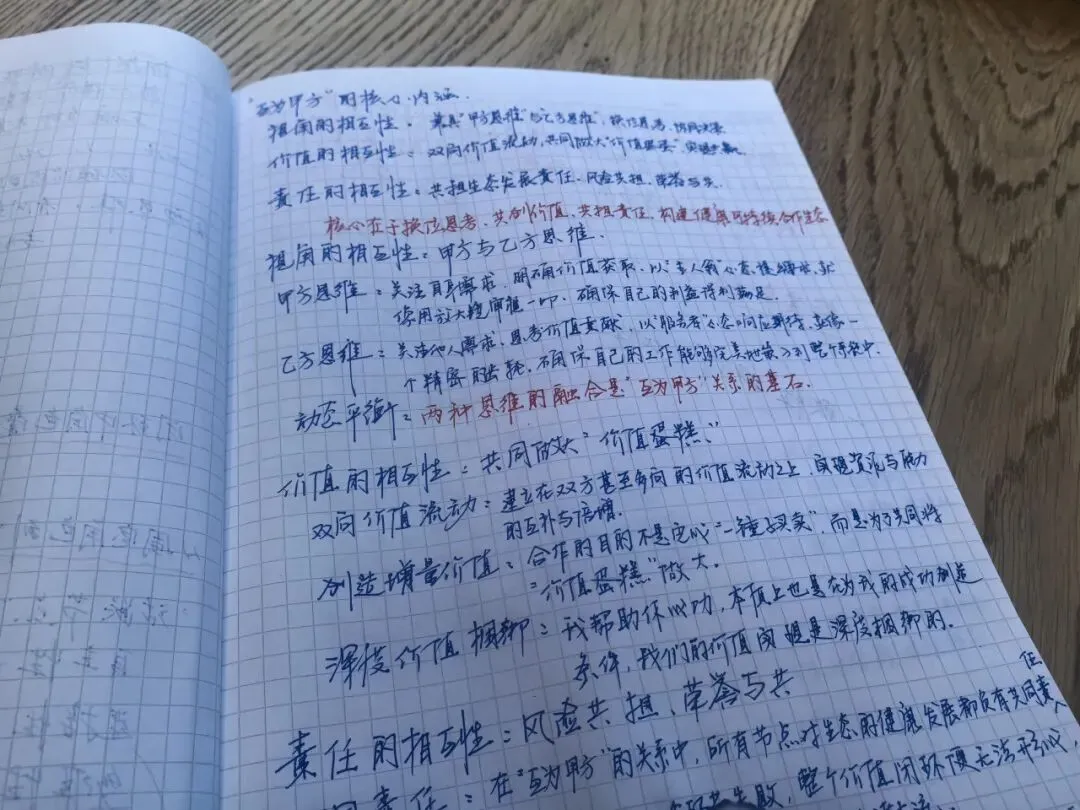 “互为甲方”的核心内涵.
视角的相互性：兼具“甲方思维”与“乙方思维”，换位思考、协同决策
价值的相互性：双向价值流动，共同做大“价值蛋糕”，实现共赢.
责任的相互性：共担生态发展责任、风险共担、荣誉与共.
核心在于换位思考、共创价值、共担责任，构建健康可持续合作生态
视角的相互性：甲方与乙方思维.
甲方思维：关注自身需求，明确价值获取，以“主人翁”心态提出需求，就
像用放大镜审视一切，确保自己的利益得到满足.
乙方思维：关注他人需求，思考价值贡献，以“服务者”心态响应期待，就像一
个精密的齿轮，确保自己的工作能够完美地嵌入到整个系统中.
动态平衡：两种思维的融合是“互为甲方”关系的基石.
价值的相互性：共同做大“价值蛋糕”
双向价值流动：建立在双方甚至多向的价值流动之上，实现资源与能力
的互补与倍增.
创造增量价值：合作的目的不是完成“一锤子买卖”，而是为了共同将
“价值蛋糕”做大.
深度价值捆绑：我帮助你成功，本质上也是在为我的成功创造
条件，我们的价值实现是深度捆绑的.
责任的相互性：风险共担、荣誉与共
责任：在“互为甲方”的关系中，所有节点对生态的健康发展都负有共同责任
失败，整个价值闭环便无法形成，